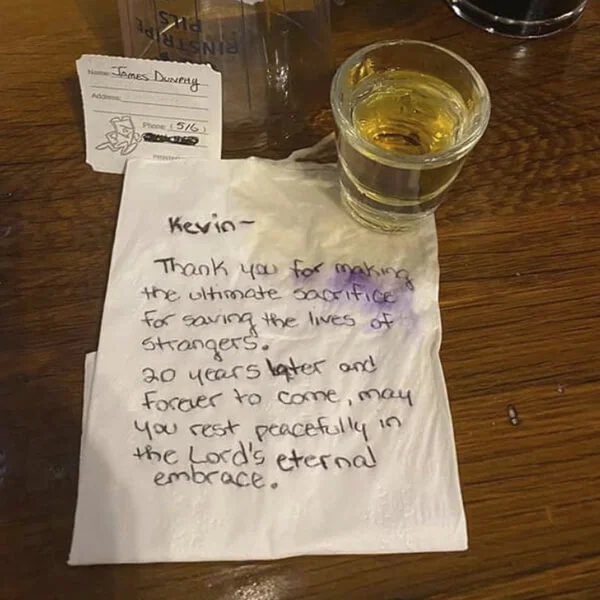 PINSTRIPE
PILS
Name: JAMES DUNPHY
Address:
Phone: (516)
Kevin~
Thank you for making
the ultimate sacrifice
for saving the lives of
strangers.
20 years later and
forever to come, may
you rest peacefully in
the Lord's eternal
embrace.